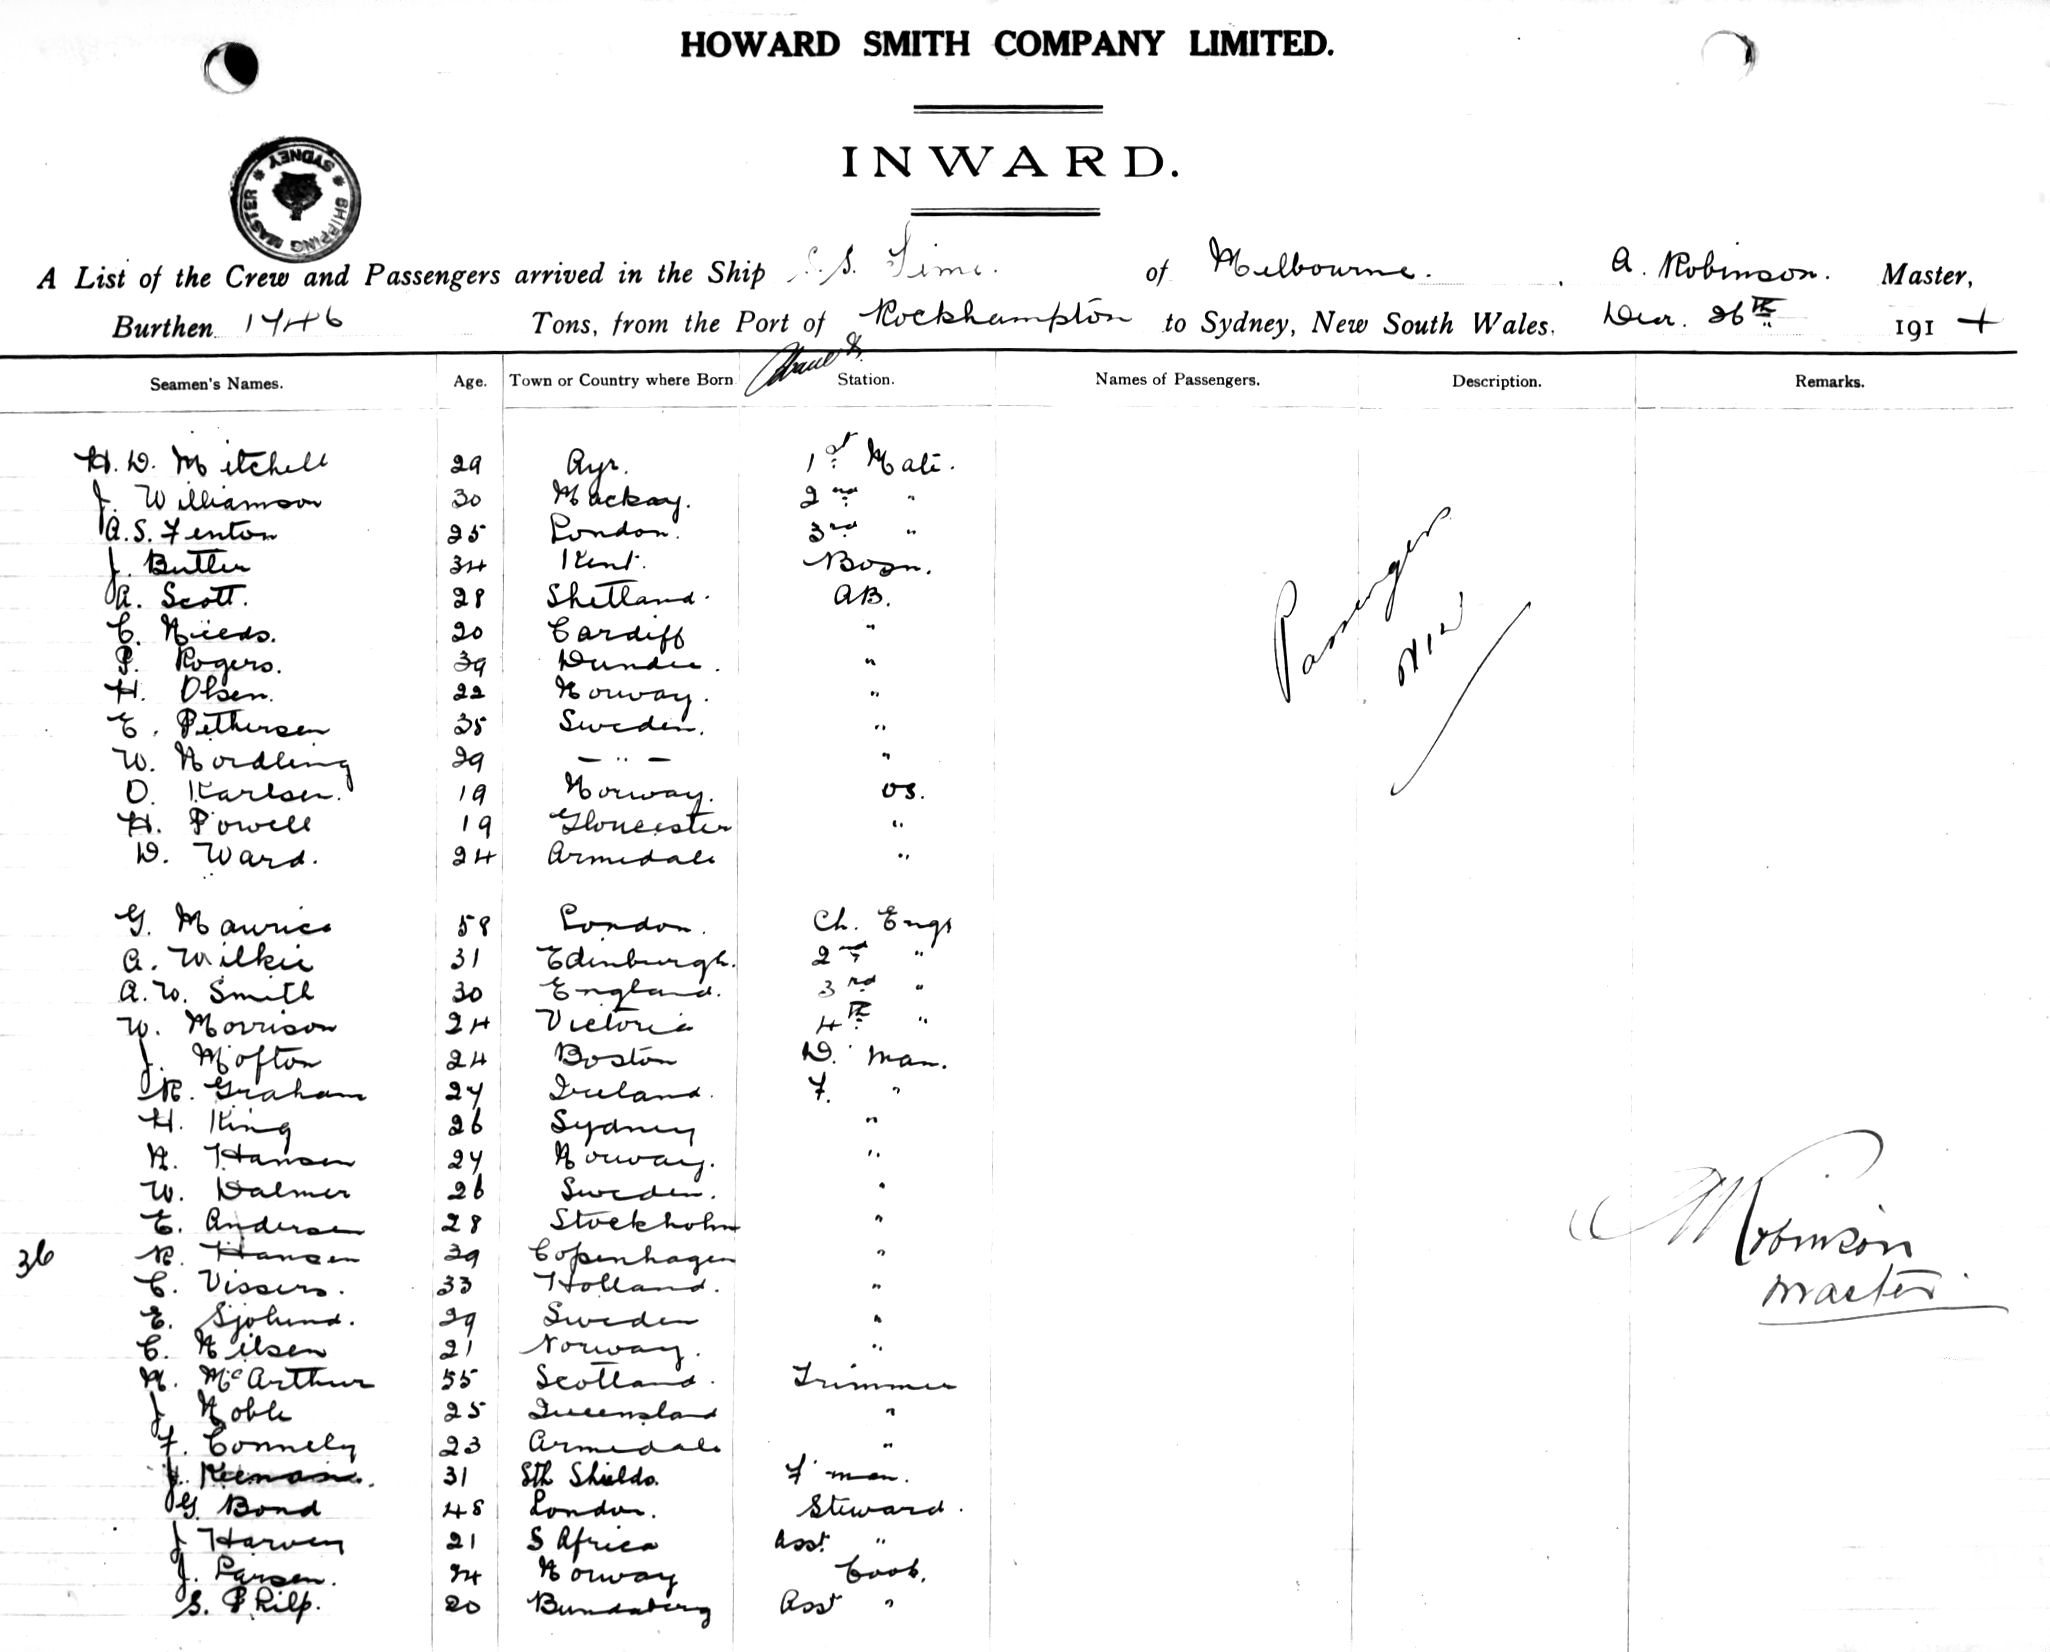 HOWARD SMITH COMPANY LIMITED.
INWARD.
SHIPPING MASTER * SYDNEY *
A List of the Crew and Passengers arrived in the Ship S.S. Time. of Melbourne. A. Robinson. Master,
Burthen 1746 Tons, from the Port of Rockhampton to Sydney, New South Wales, Decr. 26th 1914
Seamen's Names. Age. Town or Country where Born Station. Names of Passengers. Description. Remarks.
H. D. Mitchell 29 Ayr. 1st Mate.
J. Williamson 30 Mackay. 2nd "
A. S. Fenton 25 London. 3rd "
J. Butler 34 Kent. Bosn.
A. Scott. 28 Shetland. AB.
C. Nieds. 20 Cardiff "
P. Rogers. 39 Dundee. "
H. Olsen. 22 Norway. "
E. Pethersen 35 Sweden. "
W. Nordling 29 — " — "
O. Karlsen. 19 Norway. OS.
H. Powell 19 Gloucester "
D. Ward. 24 Armedale "
Passengers
Nil
G. Maurice 58 London. Ch. Engr
A. Wilkie 31 Edinburgh. 2nd "
A. W. Smith 30 England. 3rd "
W. Morrison 24 Victoria 4th "
J. Mofton 24 Boston D. Man.
R. Graham 27 Ireland. F. "
H. King 26 Sydney "
N. Hansen 27 Norway. "
W. Dalmer 26 Sweden. "
E. Andersen 28 Stockholm "
36 R. Hansen 39 Copenhagen "
C. Vissers. 33 Holland. "
E. Sjolund. 29 Sweden "
C. Nilsen 21 Norway. "
N. McArthur 55 Scotland. Trimmer
J Noble 25 Queensland "
F. Connely 23 Armedale "
J. Keenan. 31 Sth Shields. F man.
G. Bond 48 London. Steward.
J Harvey 21 S Africa Asst. "
J. Larsen. 34 Norway Cook.
S. Philp. 20 Bundaberg Asst "
A Robinson
Master